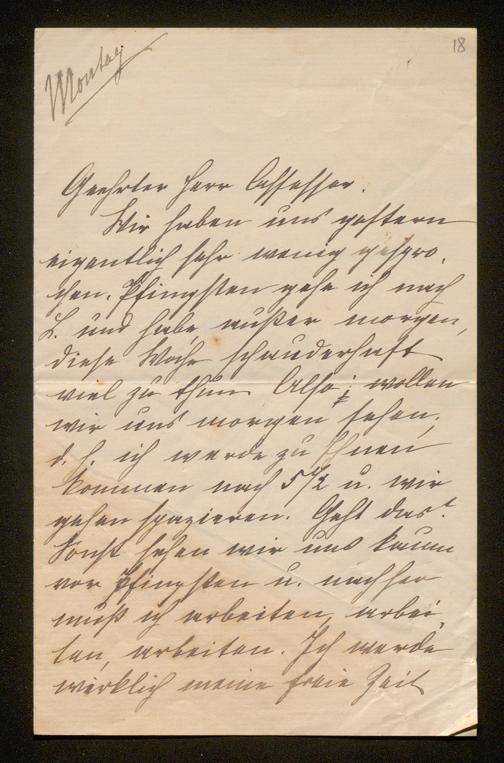 18
Montag
Geehrter Herr Assessor.
Wir haben uns gestern
eigentlich sehr wenig gespro-
chen. Pfingsten gehe ich nach
L. und habe außer morgen,
diese Woche schauderhaft
viel zu thun. Also: wollen
wir uns morgen sehen,
d. h. ich werde zu Ihnen
kommen nach 5 1/2 u. wir
gehen spazieren. Geht das?
Sonst sehen wir uns kaum
vor Pfingsten u. nachher
muß ich arbeiten, arbei-
ten, arbeiten. Ich werde
wirklich meine freie Zeit